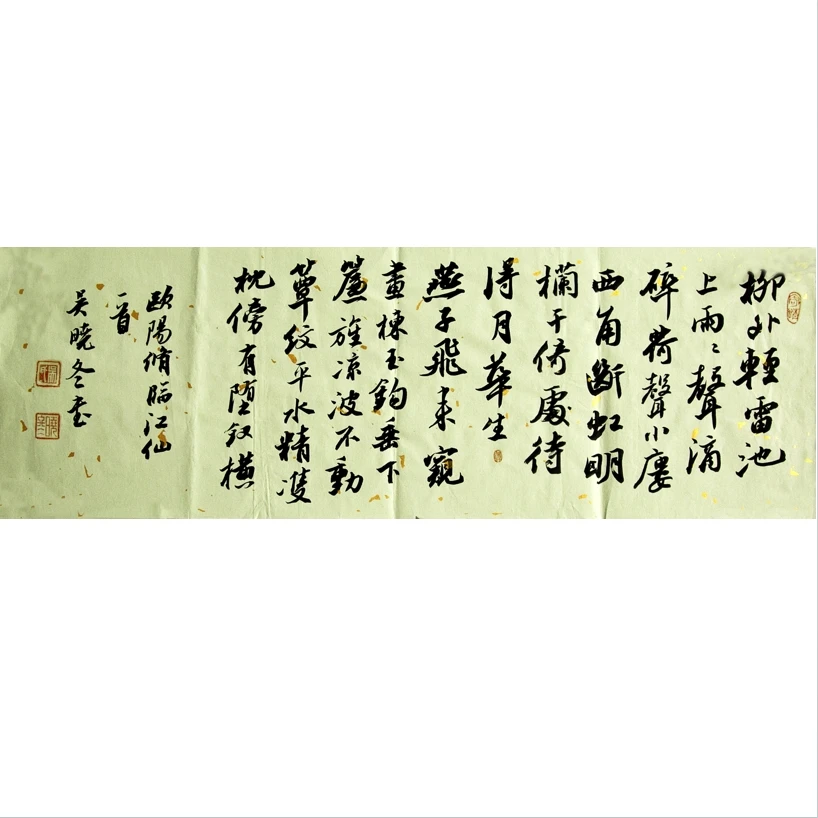 柳外輕雷池
上雨雨聲滴
碎荷聲小廔
西角斷虹明
欄干倚處待
得月華生
燕子飛来窺
畫棟玉鈎垂下
簾旌凉波不動
簟紋平水精雙
枕傍有堕釵橫
歐陽脩臨江仙
一首
吴曉冬书